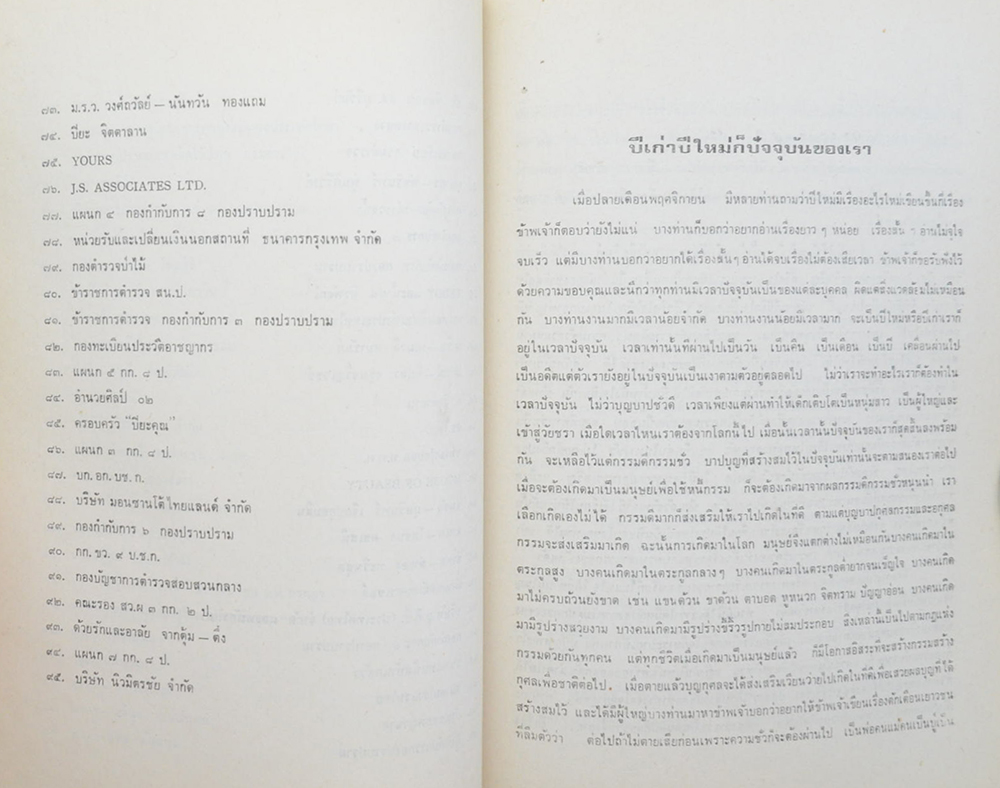 ๗๓. ม.ร.ว. วงศ์ถวัลย์ – นันทวัน ทองแถม
๗๔. ปิยะ จิตตาลาน
๗๕. YOURS
๗๖. J.S. ASSOCIATES LTD.
๗๗. แผนก ๔ กองกำกับการ ๘ กองปราบปราม
๗๘. หน่วยรับและเปลี่ยนเงินนอกสถานที่ ธนาคารกรุงเทพ จำกัด
๗๙. กองตำรวจป่าไม้
๘๐. ข้าราชการตำรวจ สน.ป.
๘๑. ข้าราชการตำรวจ กองกำกับการ ๓ กองปราบปราม
๘๒. กองทะเบียนประวัติอาชญากร
๘๓. แผนก ๕ กก. ๘ ป.
๘๔. อำนวยศิลป์ ๐๒
๘๕. ครอบครัว "ปิยะคุณ"
๘๖. แผนก ๓ กก. ๘ ป.
๘๗. บก. อก. บช. ก.
๘๘. บริษัท มอนซานโต้ไทยแลนด์ จำกัด
๘๙. กองกำกับการ ๖ กองปราบปราม
๙๐. กก. ขว. ๙ บ.ช.ก.
๙๑. กองบัญชาการตำรวจสอบสวนกลาง
๙๒. คณะรอง สว.ผ ๓ กก. ๒ ป.
๙๓. ด้วยรักและอาลัย จากตุ้ม – ติ่ง
๙๔. แผนก ๗ กก. ๘ ป.
๙๕. บริษัท นิวมิตรชัย จำกัด
ปีเก่าปีใหม่ก็ปัจจุบันของเรา
เมื่อปลายเดือนพฤศจิกายน มีหลายท่านถามว่าปีใหม่มีเรื่องอะไรใหม่เขียนขึ้นกี่เรื่อง
ข้าพเจ้าก็ตอบว่ายังไม่แน่ บางท่านก็บอกว่าอยากอ่านเรื่องยาว ๆ หน่อย เรื่องสั้น ๆ อ่านไม่จุใจ
จบเร็ว แต่มีบางท่านบอกว่าอยากได้เรื่องสั้นๆ อ่านได้จบเรื่องไม่ต้องเสียเวลา ข้าพเจ้าก็ขอรับฟังไว้
ด้วยความขอบคุณและนึกว่าทุกท่านมีเวลาปัจจุบันเป็นของแต่ละบุคคล ผิดแต่สิ่งแวดล้อมไม่เหมือน
กัน บางท่านงานมากมีเวลาน้อยจำกัด บางท่านงานน้อยมีเวลามาก จะเป็นปีใหม่หรือปีเก่าเราก็
อยู่ในเวลาปัจจุบัน เวลาเท่านั้นที่ผ่านไปเป็นวัน เป็นคืน เป็นเดือน เป็นปี เคลื่อนผ่านไป
เป็นอดีตแต่ตัวเรายังอยู่ในปัจจุบันเป็นเงาตามตัวอยู่ตลอดไป ไม่ว่าเราจะทำอะไรเราก็ต้องทำใน
เวลาปัจจุบัน ไม่ว่าบุญบาปชั่วดี เวลาเพียงแต่ผ่านทำให้เด็กเติบโตเป็นหนุ่มสาว เป็นผู้ใหญ่และ
เข้าสู่วัยชรา เมื่อใดเวลาไหนเราต้องจากโลกนี้ไป เมื่อนั้นเวลานั้นปัจจุบันของเราก็สุดสิ้นลงพร้อม
กัน จะเหลือไว้แต่กรรมดีกรรมชั่ว บาปบุญที่สร้างสมไว้ในปัจจุบันเท่านั้นจะตามสนองเราต่อไป
เมื่อจะต้องเกิดมาเป็นมนุษย์เพื่อใช้หนี้กรรม ก็จะต้องเกิดมาจากผลกรรมดีกรรมชั่วหนุนนำ เรา
เลือกเกิดเองไม่ได้ กรรมดีมากก็ส่งเสริมให้เราไปเกิดในที่ดี ตามแต่บุญบาปกุศลกรรมและอกุศล
กรรมจะส่งเสริมมาเกิด ฉะนั้นการเกิดมาในโลก มนุษย์จึงแตกต่างไม่เหมือนกันบางคนเกิดมาใน
ตระกูลสูง บางคนเกิดมาในตระกูลกลางๆ บางคนเกิดมาในตระกูลต่ำยากจนเข็ญใจ บางคนเกิด
มาไม่ครบถ้วนยังขาด เช่น แขนด้วน ขาด้วน ตาบอด หูหนวก จิตทราม ปัญญาอ่อน บางคนเกิด
มามีรูปร่างสวยงาม บางคนเกิดมามีรูปร่างขี้ริ้วรูปกายไม่สมประกอบ สิ่งเหล่านี้เป็นไปตามกฎแห่ง
กรรมด้วยกันทุกคน แต่ทุกชีวิตเมื่อเกิดมาเป็นมนุษย์แล้ว ก็มีโอกาสอิสระที่จะสร้างกรรมสร้าง
กุศลเพื่อชาติต่อไป เมื่อตายแล้วบุญกุศลจะได้ส่งเสริมเวียนว่ายไปเกิดในที่ดีเพื่อเสวยผลบุญที่ได้
สร้างสมไว้ และได้มีผู้ใหญ่บางท่านมาหาข้าพเจ้าบอกว่าอยากให้ข้าพเจ้าเขียนเรื่องตักเตือนเยาวชน
ที่ลืมตัวว่า ต่อไปถ้าไม่ตายเสียก่อนเพราะความชั่วก็จะต้องผ่านไป เป็นพ่อคนแม่คนเป็นปู่เป็น